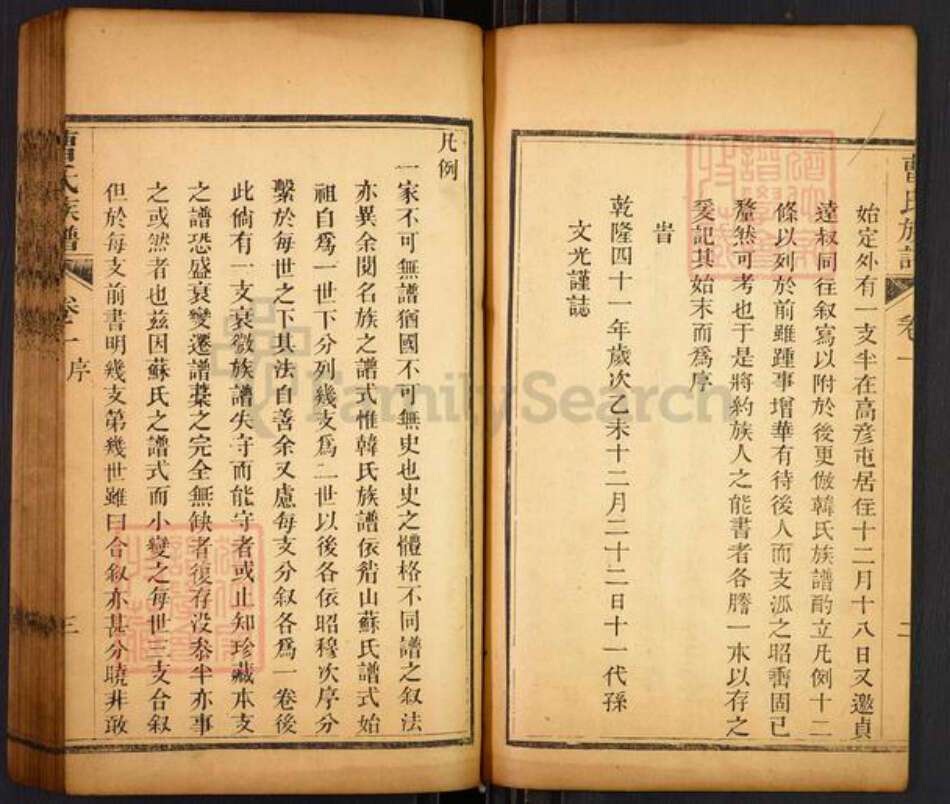 曹氏族譜 卷一 二
始定外有一支半在高彦屯居住十二月十八日又邀貞
達叔同往叙寫以附於後更倣韓氏族譜酌立凡例十二
條以列於前雖踵事增華有待後人而支派之昭晣固已
釐然可考也于是將約族人之能書者各謄一本以存之
爰記其始末而爲序
旹
乾隆四十一年歲次乙未十二月二十二日十一代孫
文光謹誌
凡例
一家不可無譜猶國不可無史也史之體格不同譜之叙法
亦異余閱名族之譜式惟韓氏族譜依眉山蘇氏譜式始
祖自爲一世下分列幾支爲二世以後各依昭穆次序分
繫於每世之下其法自善余又慮每支分叙各爲一卷後
此倘有一支衰微族譜失守而能守者或止知珍藏本支
之譜恐盛衰變遷譜葉之完全無缺者復存没叅半亦事
之或然者也兹因蘇氏之譜式而小變之每世三支合叙
但於每支前書明幾支第幾世雖曰合叙亦甚分曉非敢
曹氏族譜 卷一 序 三
FamilySearch